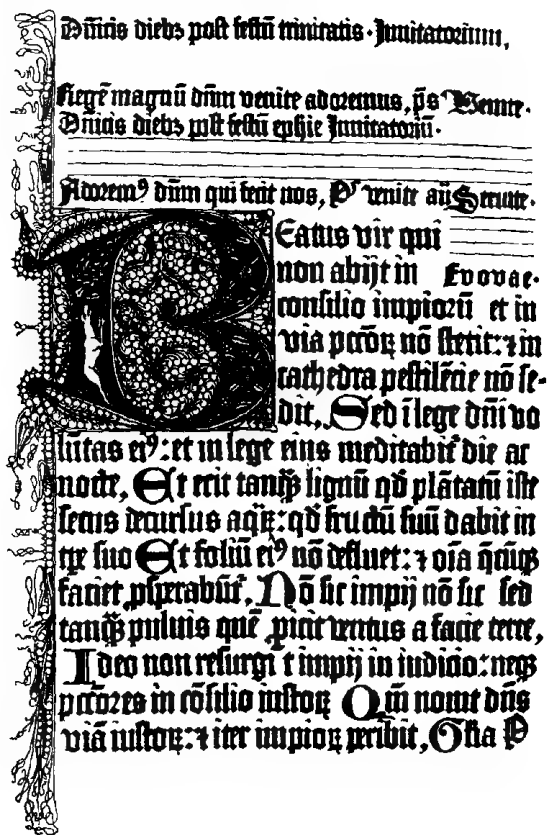 Dn̄icis dieb₃ post festū trinitatis · Inuitatorium,
Regē magnū dn̄m venite adoremus, p̄s Venite ·
Dn̄icis dieb₃ post festū ephie Inuitatoriū ·
Adorem⁹ dn̄m qui fecit nos, P̄s venite an̄ Seruite ·
Beatus vir qui
non abijt in Evovae ·
consilio impiorū et in
via pcc̄oꝝ nō stetit: ⁊ in
cathedra pestilēcie nō se-
dit, Sed ī lege dn̄i vo
lūtas ei⁹: et in lege eius meditabit᷑ die ac
nocte, Et erit tanqꝫ lignū qd̄ plātatū iste
secus decursus aqꝝ: qd̄ fructū suū dabit in
tp̄e suo Et foliū ei⁹ nō defluet: ⁊ oīa q̄cūqꝫ
faciet ꝓsperabūt᷑, Nō sic impij nō sic sed
tanqꝫ puluis quē ꝓicit ventus a facie terre,
Ideo non resurgūt impij in iudicio: neqꝫ
pccōres in cōsilio iustoꝝ Qm̄ nouit dn̄s
viā iustoꝝ: ⁊ iter impioꝝ peribit, Glīa P